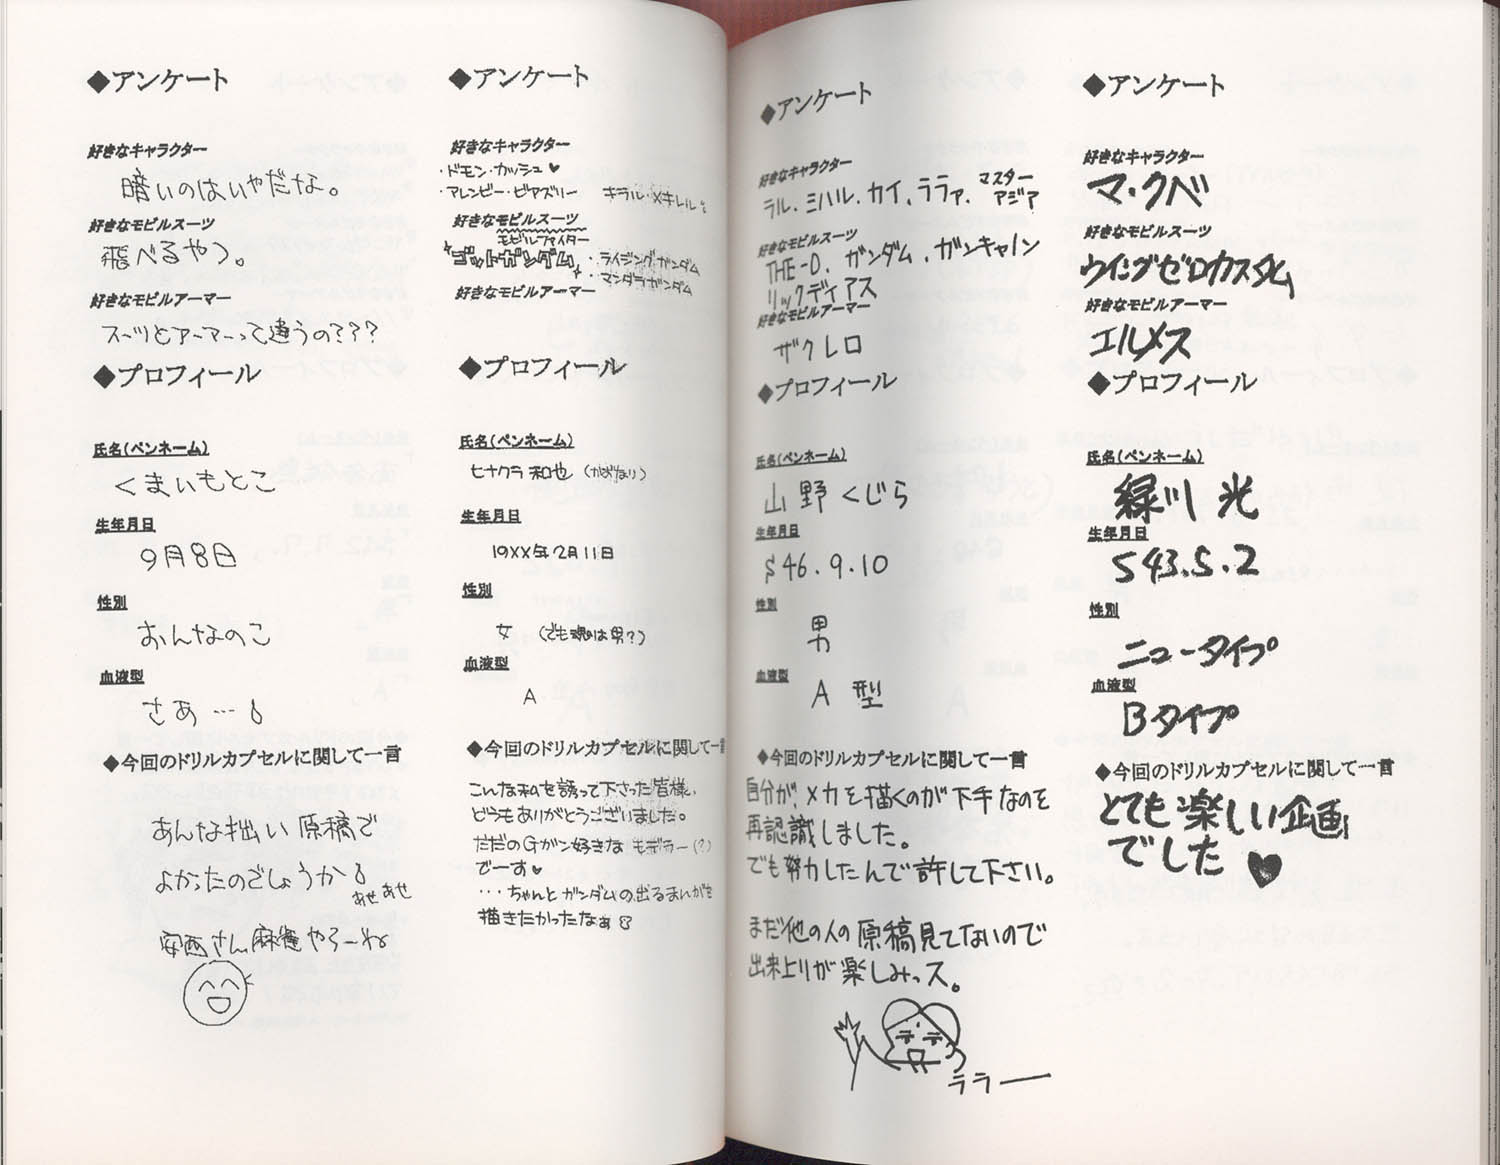 ◆アンケート
好きなキャラクター
暗いのはいやだな。
好きなモビルスーツ
飛べるやつ。
好きなモビルアーマー
スーツとアーマーって違うの???
◆プロフィール
氏名(ペンネーム)
くまいもとこ
生年月日
9月8日
性別
おんなのこ
血液型
さあ…
◆今回のドリルカプセルに関して一言
あんな拙い原稿で
よかったのでしょうか
あせあせ
安西さん麻雀やろーね
◆アンケート
好きなキャラクター
・ドモン・カッシュ♥
・アレンビー・ビアズリー キラル・メキレル
好きなモビルスーツ
モビルファイター
ゴットガンダム ・ライジングガンダム
・マンダラガンダム
好きなモビルアーマー
◆プロフィール
氏名(ペンネーム)
ヒナクラ 和也 (かずなり)
生年月日
19XX年2月11日
性別
女 (でも魂は男?)
血液型
A
◆今回のドリルカプセルに関して一言
こんな私を誘って下さった皆様、
どうもありがとうございました。
ただのGガン好きなモデラー(?)
でーす♥
・・・ちゃんとガンダムの出るまんがを
描きたかったなぁ
◆アンケート
好きなキャラクター
ラル、ミハル、カイ、ララァ、マスターアジア
好きなモビルスーツ
THE-O、ガンダム、ガンキャノン
リックディアス
好きなモビルアーマー
ザクレロ
◆プロフィール
氏名(ペンネーム)
山野くじら
生年月日
S46.9.10
性別
男
血液型
A型
◆今回のドリルカプセルに関して一言
自分が、メカを描くのが下手なのを
再認識しました。
でも努力したんで許して下さい。
まだ他の人の原稿見てないので
出来上りが楽しみっス。
ララー
◆アンケート
好きなキャラクター
マ・クベ
好きなモビルスーツ
ウイングゼロカスタム
好きなモビルアーマー
エルメス
◆プロフィール
氏名(ペンネーム)
緑川 光
生年月日
S43.5.2
性別
ニュータイプ
血液型
Bタイプ
◆今回のドリルカプセルに関して一言
とても楽しい企画
でした♥